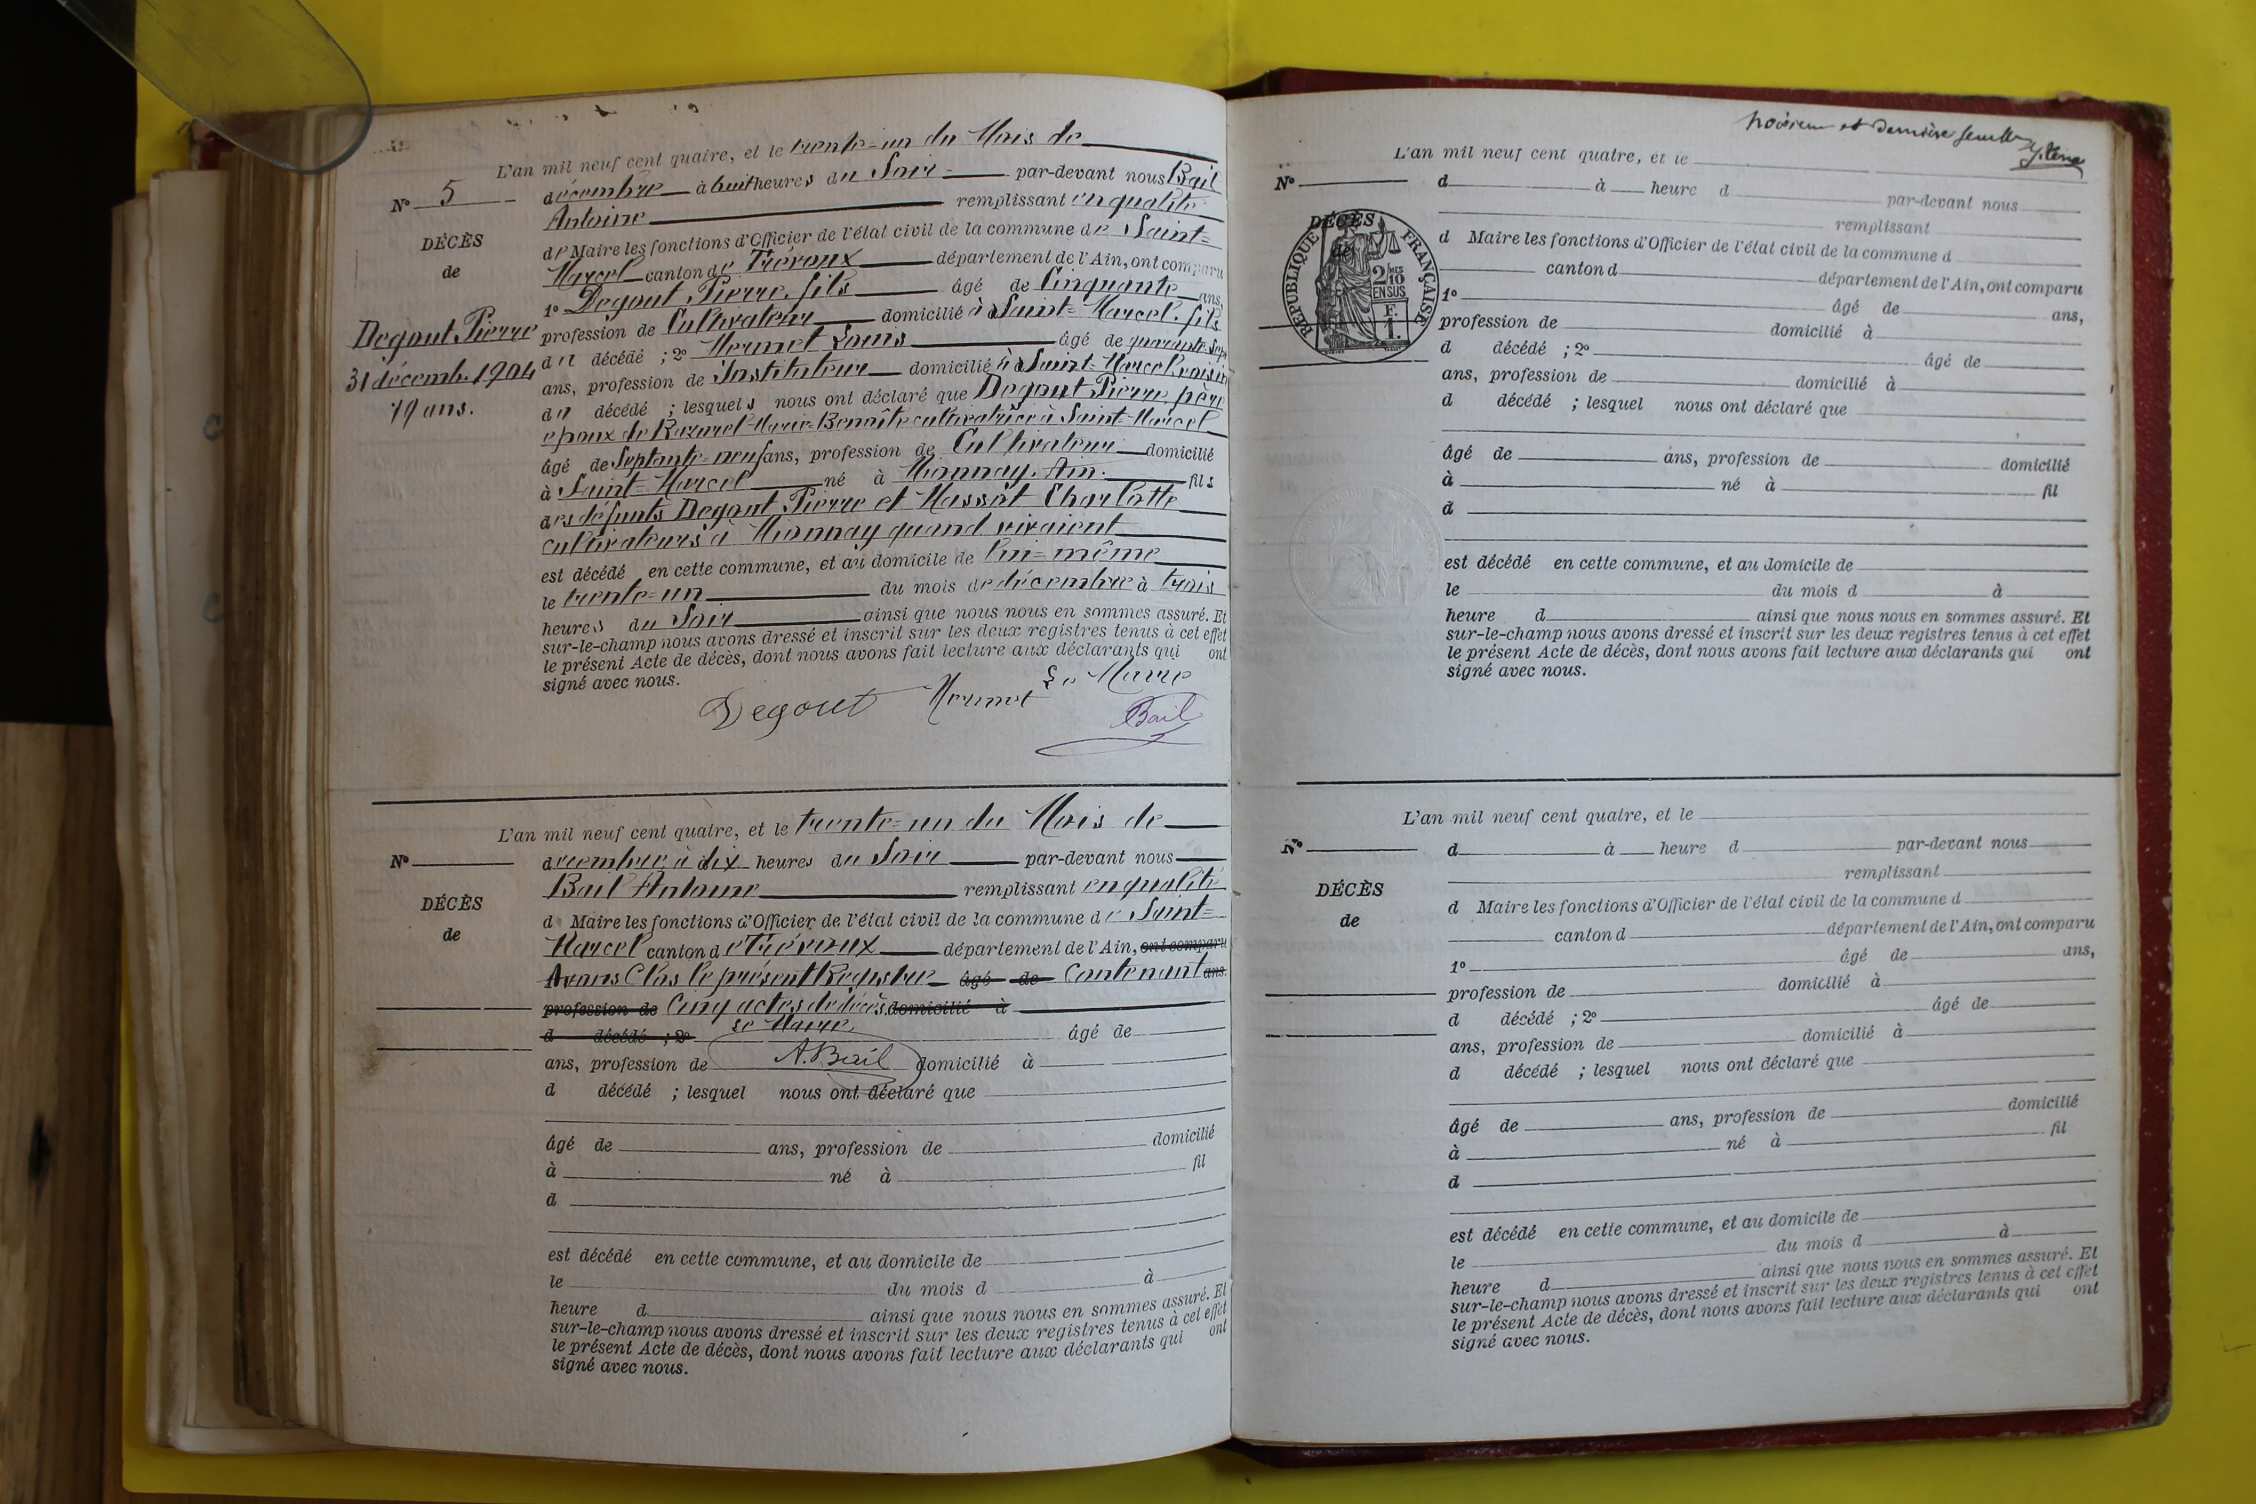 L'an mil neuf cent quatre, et le trente-un du Mois de
No 5
décembre à huit heures du Soir par-devant nous Bail
Antoine remplissant en qualité
DÉCÈS
de
de Maire les fonctions d'Officier de l'état civil de la commune de Saint-
Marcel canton de Trévoux département de l'Ain, ont comparu
1o Degout Pierre, fils âgé de Cinquante ans,
Degout Pierre
31 décemb. 1904
79 ans.
profession de Cultivateur domicilié à Saint-Marcel. fils
du décédé ; 2o Mermet Louis âgé de quarante-sept
ans, profession de Instituteur domicilié à Saint-Marcel voisin
du décédé ; lesquels nous ont déclaré que Degout Pierre, père
époux de Marie-Benoîte cultivatrice à Saint-Marcel
âgé de Septante-neuf ans, profession de Cultivateur domicilié
à Saint-Marcel né à Monnay, Ain. fils
des défunts Degout Pierre et Massot Charlotte
cultivateurs à Monnay quand vivaient
est décédé en cette commune, et au domicile de lui-même
le trente-un du mois de décembre à trois
heures du Soir ainsi que nous nous en sommes assuré. Et
sur-le-champ nous avons dressé et inscrit sur les deux registres tenus à cet effet
le présent Acte de décès, dont nous avons fait lecture aux déclarants qui ont
signé avec nous.
Degout Mermet Le Maire
Bail
L'an mil neuf cent quatre, et le trente-un du Mois de
No
décembre à dix heures du Soir par-devant nous
Bail Antoine remplissant en qualité
DÉCÈS
de
d Maire les fonctions d'Officier de l'état civil de la commune de Saint-
Marcel canton de Trévoux département de l'Ain, ont comparu
Avons Clos le présent Registre âgé de Contenant ans.
profession de Cinq actes de décès. domicilié à
d décédé ; 2o Le Maire, âgé de
ans, profession de A. Bail domicilié à
d décédé ; lesquel nous ont déclaré que
âgé de ans, profession de domicilié
à né à fil
d
est décédé en cette commune, et au domicile de
le du mois d à
heure d ainsi que nous nous en sommes assuré. Et
sur-le-champ nous avons dressé et inscrit sur les deux registres tenus à cet effet
le présent Acte de décès, dont nous avons fait lecture aux déclarants qui ont
signé avec nous.
et dernière feuille
L'an mil neuf cent quatre, et le
No
d à heure d par-devant nous
remplissant
DÉCÈS
de
RÉPUBLIQUE FRANÇAISE
2/10 MES
EN SUS
F.
1.
d Maire les fonctions d'Officier de l'état civil de la commune d
canton d département de l'Ain, ont comparu
1o âgé de ans,
profession de domicilié à
d décédé ; 2o âgé de
ans, profession de domicilié à
d décédé ; lesquel nous ont déclaré que
âgé de ans, profession de domicilié
à né à fil
d
est décédé en cette commune, et au domicile de
le du mois d à
heure d ainsi que nous nous en sommes assuré. Et
sur-le-champ nous avons dressé et inscrit sur les deux registres tenus à cet effet
le présent Acte de décès, dont nous avons fait lecture aux déclarants qui ont
signé avec nous.
L'an mil neuf cent quatre, et le
No
d à heure d par-devant nous
remplissant
DÉCÈS
de
d Maire les fonctions d'Officier de l'état civil de la commune d
canton d département de l'Ain, ont comparu
1o âgé de ans,
profession de domicilié à
d décédé ; 2o âgé de
ans, profession de domicilié à
d décédé ; lesquel nous ont déclaré que
âgé de ans, profession de domicilié
à né à fil
d
est décédé en cette commune, et au domicile de
le du mois d à
heure d ainsi que nous nous en sommes assuré. Et
sur-le-champ nous avons dressé et inscrit sur les deux registres tenus à cet effet
le présent Acte de décès, dont nous avons fait lecture aux déclarants qui ont
signé avec nous.